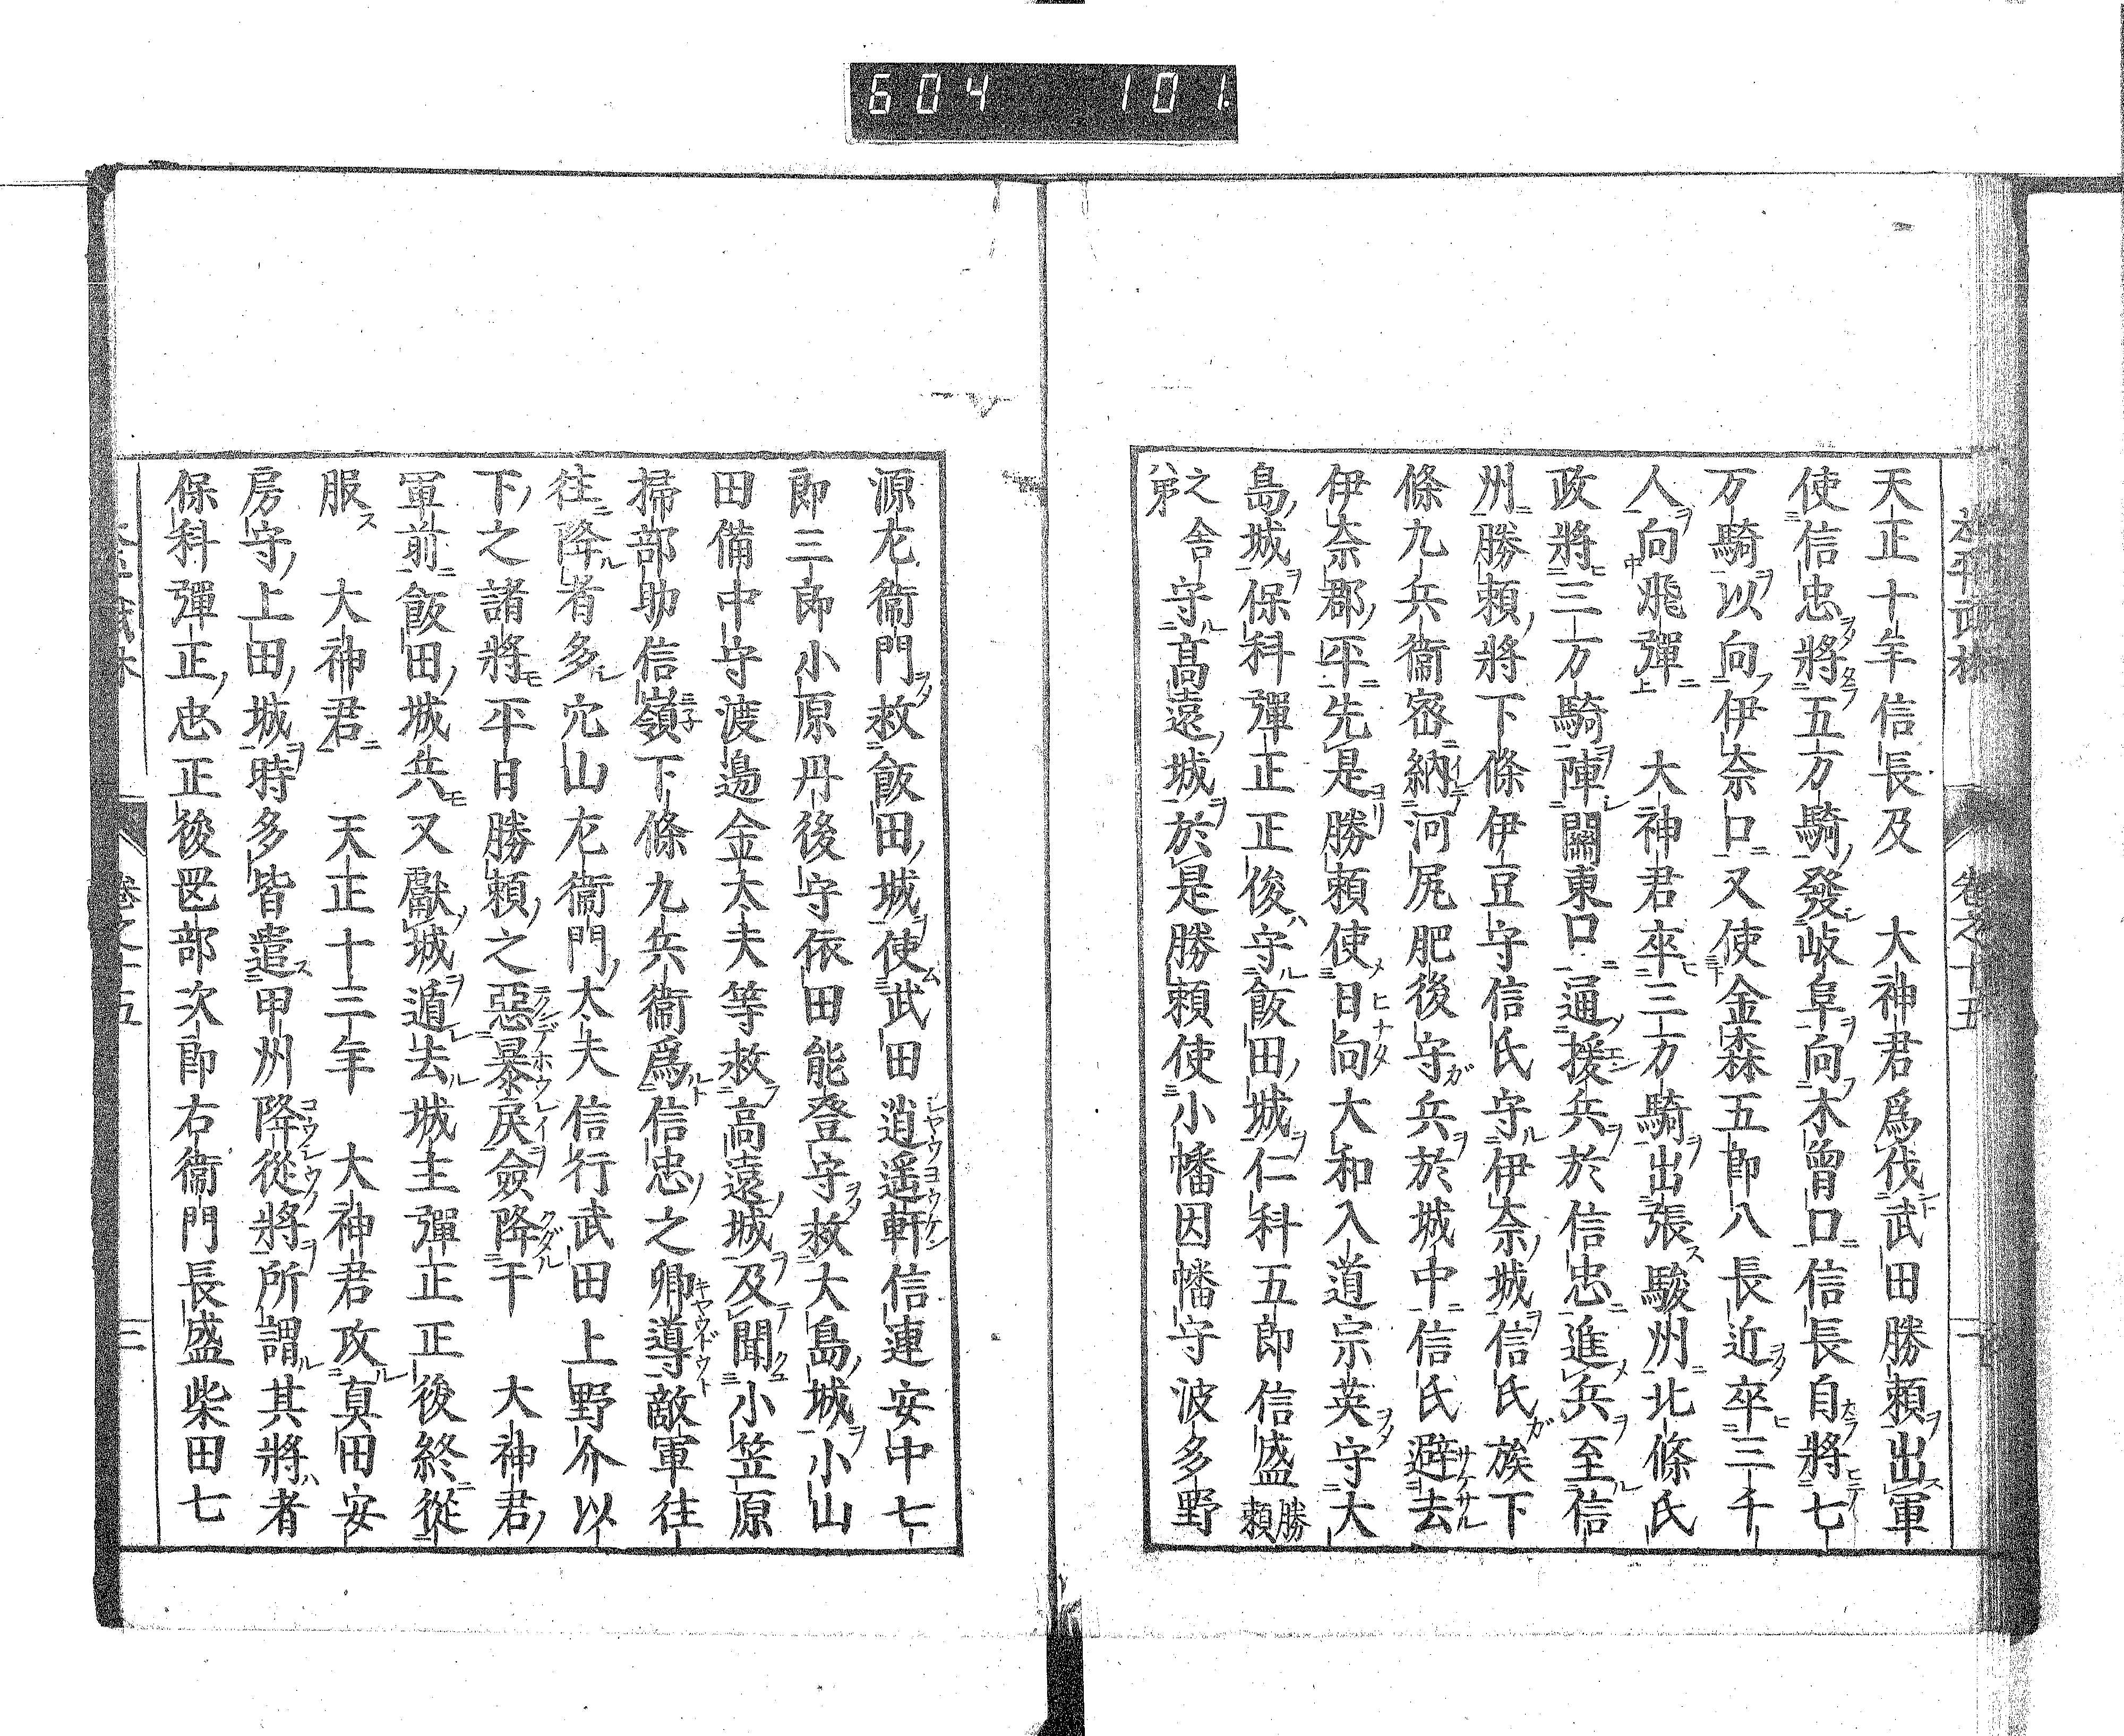 604 101.
天正十年信長及 大神君爲伐武田勝頼出軍
使信忠將五万騎發岐阜向木曾口信長自將七
万騎以向伊奈口又使金森五郎八長近卒三千
人向飛彈 大神君卒三万騎出張駿州北條氏
政將三万騎陣關東口通援兵於信忠進兵至信
州勝頼將下條伊豆守信氏守伊奈城信氏族下
條九兵衞密納河尻肥後守兵於城中信氏避去
伊奈郡平先是勝頼使日向大和入道宗英守大
島城保科彈正正俊守飯田城仁科五郎信盛勝頼
之舍弟守高遠城於是勝頼使小幡因幡守波多野
源左衞門救飯田城使武田逍遥軒信連安中七
郎三郎小原丹後守依田能登守救大島城小山
田備中守渡邉金太夫等救高遠城及聞小笠原
掃部助信嶺下條九兵衞爲信忠之郷導敵軍往
往降者多穴山左衞門太夫信行武田上野介以
下之諸將平日勝頼之惡暴戻僉降于 大神君
軍前飯田城兵又獻城遁去城主彈正正後終從
服 大神君 天正十三年 大神君攻真田安
房守上田城時多皆遣甲州降從將所謂其將者
保科彈正忠正後罡部次郎右衞門長盛柴田七
卷之十五
三